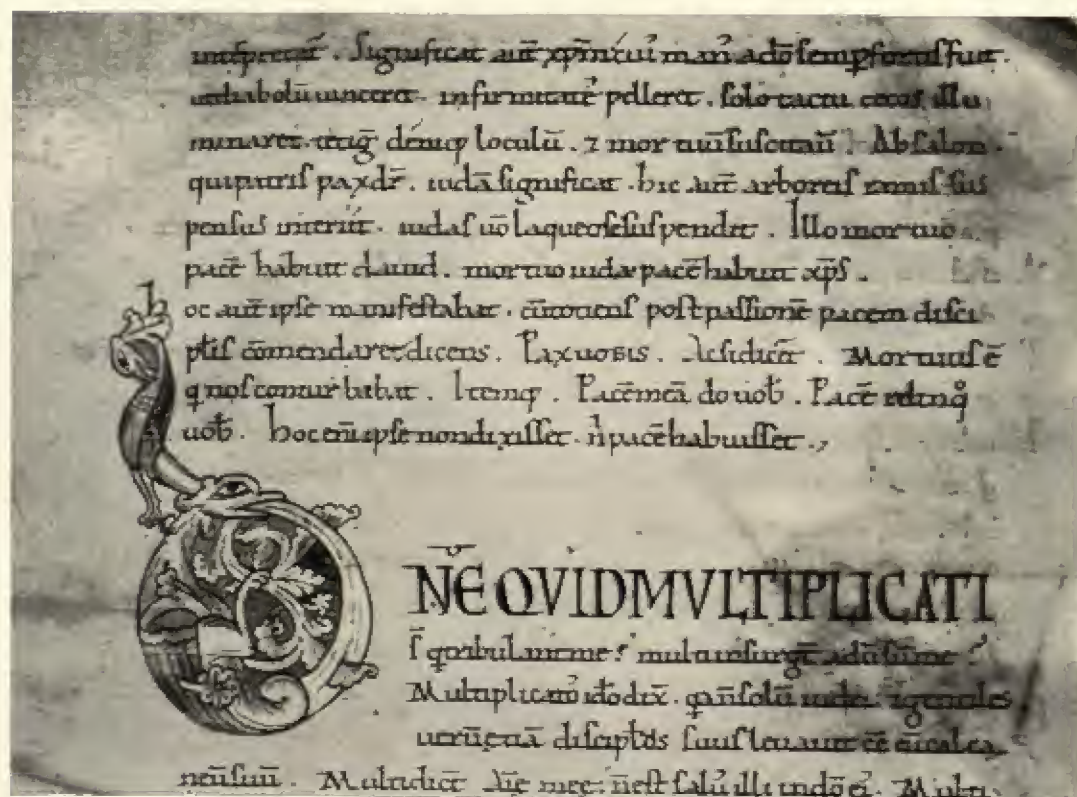 inťpretat̄ . Significat aut̄ xp̄m cui' man' adō semp fortis fuit .
ut diabolū uinceret . infirmitatē pelleret . solo tactu cecos illu
minaret . tetiḡ deniq; loculū . ⁊ mortuū suscitauit . Absalon .
qui patris pax dr̄ . iudā significat . hic aut̄ arboreis ramis sus
pensus interiit . iudas uō laqueo se suspendit . Illo mortuo
pacē habuit dauid . mortuo iuda pacē habuit xp̄s .
hoc aut̄ ipse manifestabat . cū totiens post passionē pacem disci
pl̄is cōmendaret dicens . Pax uobis . Ac si dicat̄ . Mortuus ē
q nos conturbabat . Itemq; . Pacē meā do uob̄ . Pacē relinq̊
uob̄ . hoc eni̅ ipse non dixisset . n̄ pacē habuisset .,
DN̄E QVID MVLTIPLICATI
s̄ q tribulant me ? multi insurgt̄ adūsū me ?
Multiplicatos ido dix̄ . q n̄ solū iudei . ⁊ gentiles
uerū etiā discipl̄os suus leuauit eē eū calca
neū suū . Multi dicūt aīe mee . n̄ est sal' illi in dō ei' . Multi